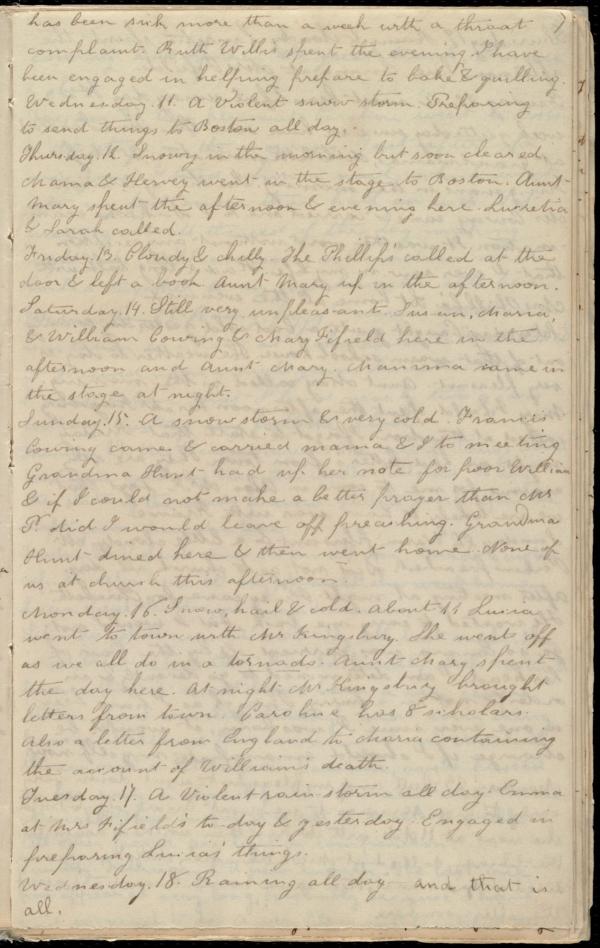 has been sick more than a week with a throat 7
complaint. Ruth Willis spent the evening. I have
been engaged in helping prepare to bake & quilling.
Wednesday. 11. A violent snow storm. Preparing
to send things to Boston all day.
Thursday. 12. Snowy in the morning but soon cleared.
Mama & Hervey went in the stage to Boston. Aunt
Mary spent the afternoon & evening here. Lucretia
& Sarah called.
Friday. 13. Cloudy & chilly. The Phillip's called at the
door & left a book. Aunt Mary up in the afternoon.
Saturday. 14. Still very unpleasant. Susan, Maria,
& William Cowing & Mary Fifield here in the
afternoon and Aunt Mary. Mamma came in
the stage at night.
Sunday. 15. A snowstorm & very cold. Francis
Cowing came & carried mama & I to meeting
Grandma Hunt had up her note for poor William
& if I could not make a better prayer than Mr
P. did I would leave off preaching. Grandma
Hunt dined here & then went home. None of
us at church this afternoon
Monday. 16. Snow, hail & cold. About 11 Lucia
went to town with Mr Kingsbury. She went off
as we all do in a tornado. Aunt Mary spent
the day here. At night Mr Kingsbury brought
letters from town. Caroline has 8 scholars.
Also a letter from England to Maria containing
the account of William's death.
Tuesday. 17. A violent rain storm all day. Emma
at Mrs Fifield's to-day & yesterday. Engaged in
preparing Lucia's things.
Wednesday. 18. Raining all day and that is
all.